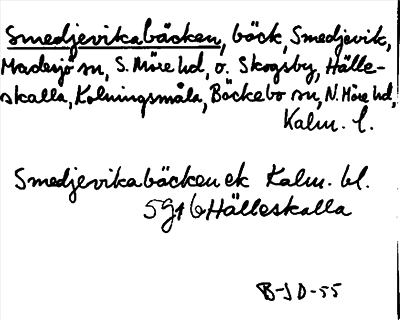 Smedjevikabäcken, bäck, Smedjevik,
Madesjö sn, S. Möre hd, o. Skogsby, Hälle-
skalla, Kolningsmåla, Bäckebo sn, N. Möre hd,
Kalm. l.
Smedjevikabäcken ek Kalm. bl.
5g1b Hälleskalla
B-ID-55